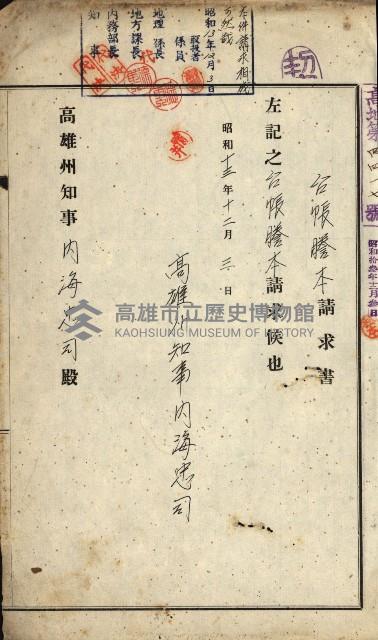 台帳謄本請求書
左記之台帳謄本請求候也
昭和十三年十二月三日
高雄州知事内海忠司
高雄州知事内海忠司殿
左件請求相成
可然哉
昭和13年12月3日
取扱者
係員
地理係長
地方課長
内務部長
知事
昭和拾参年十二月参日
高雄市立歷史博物館
KAOHSIUNG MUSEUM OF HISTORY